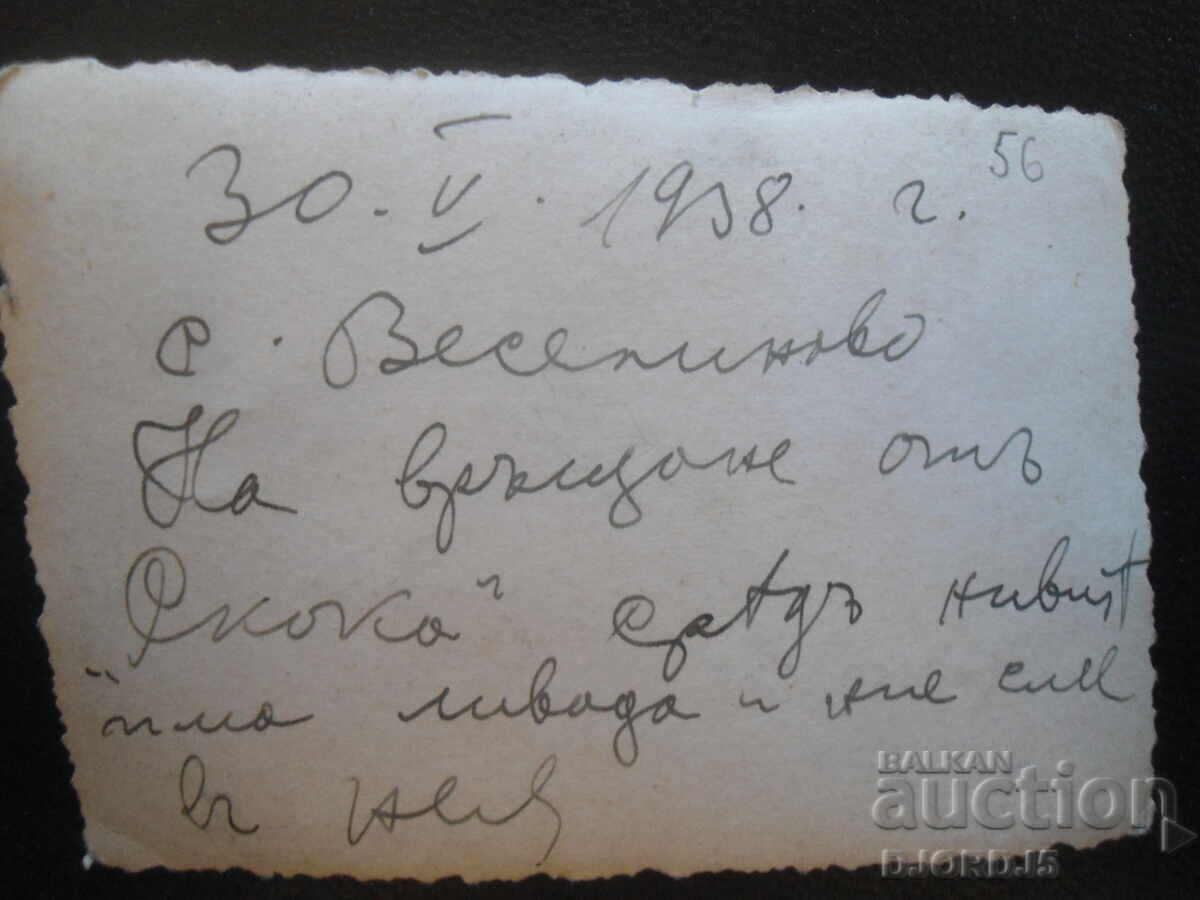 30. V. 1938. г.
56
с. Веселиново
На връщане отъ
„Скока“ срѣдъ нивитѣ
има ливада и ние сме
въ нея
BALKAN
auction
DJORDJ5